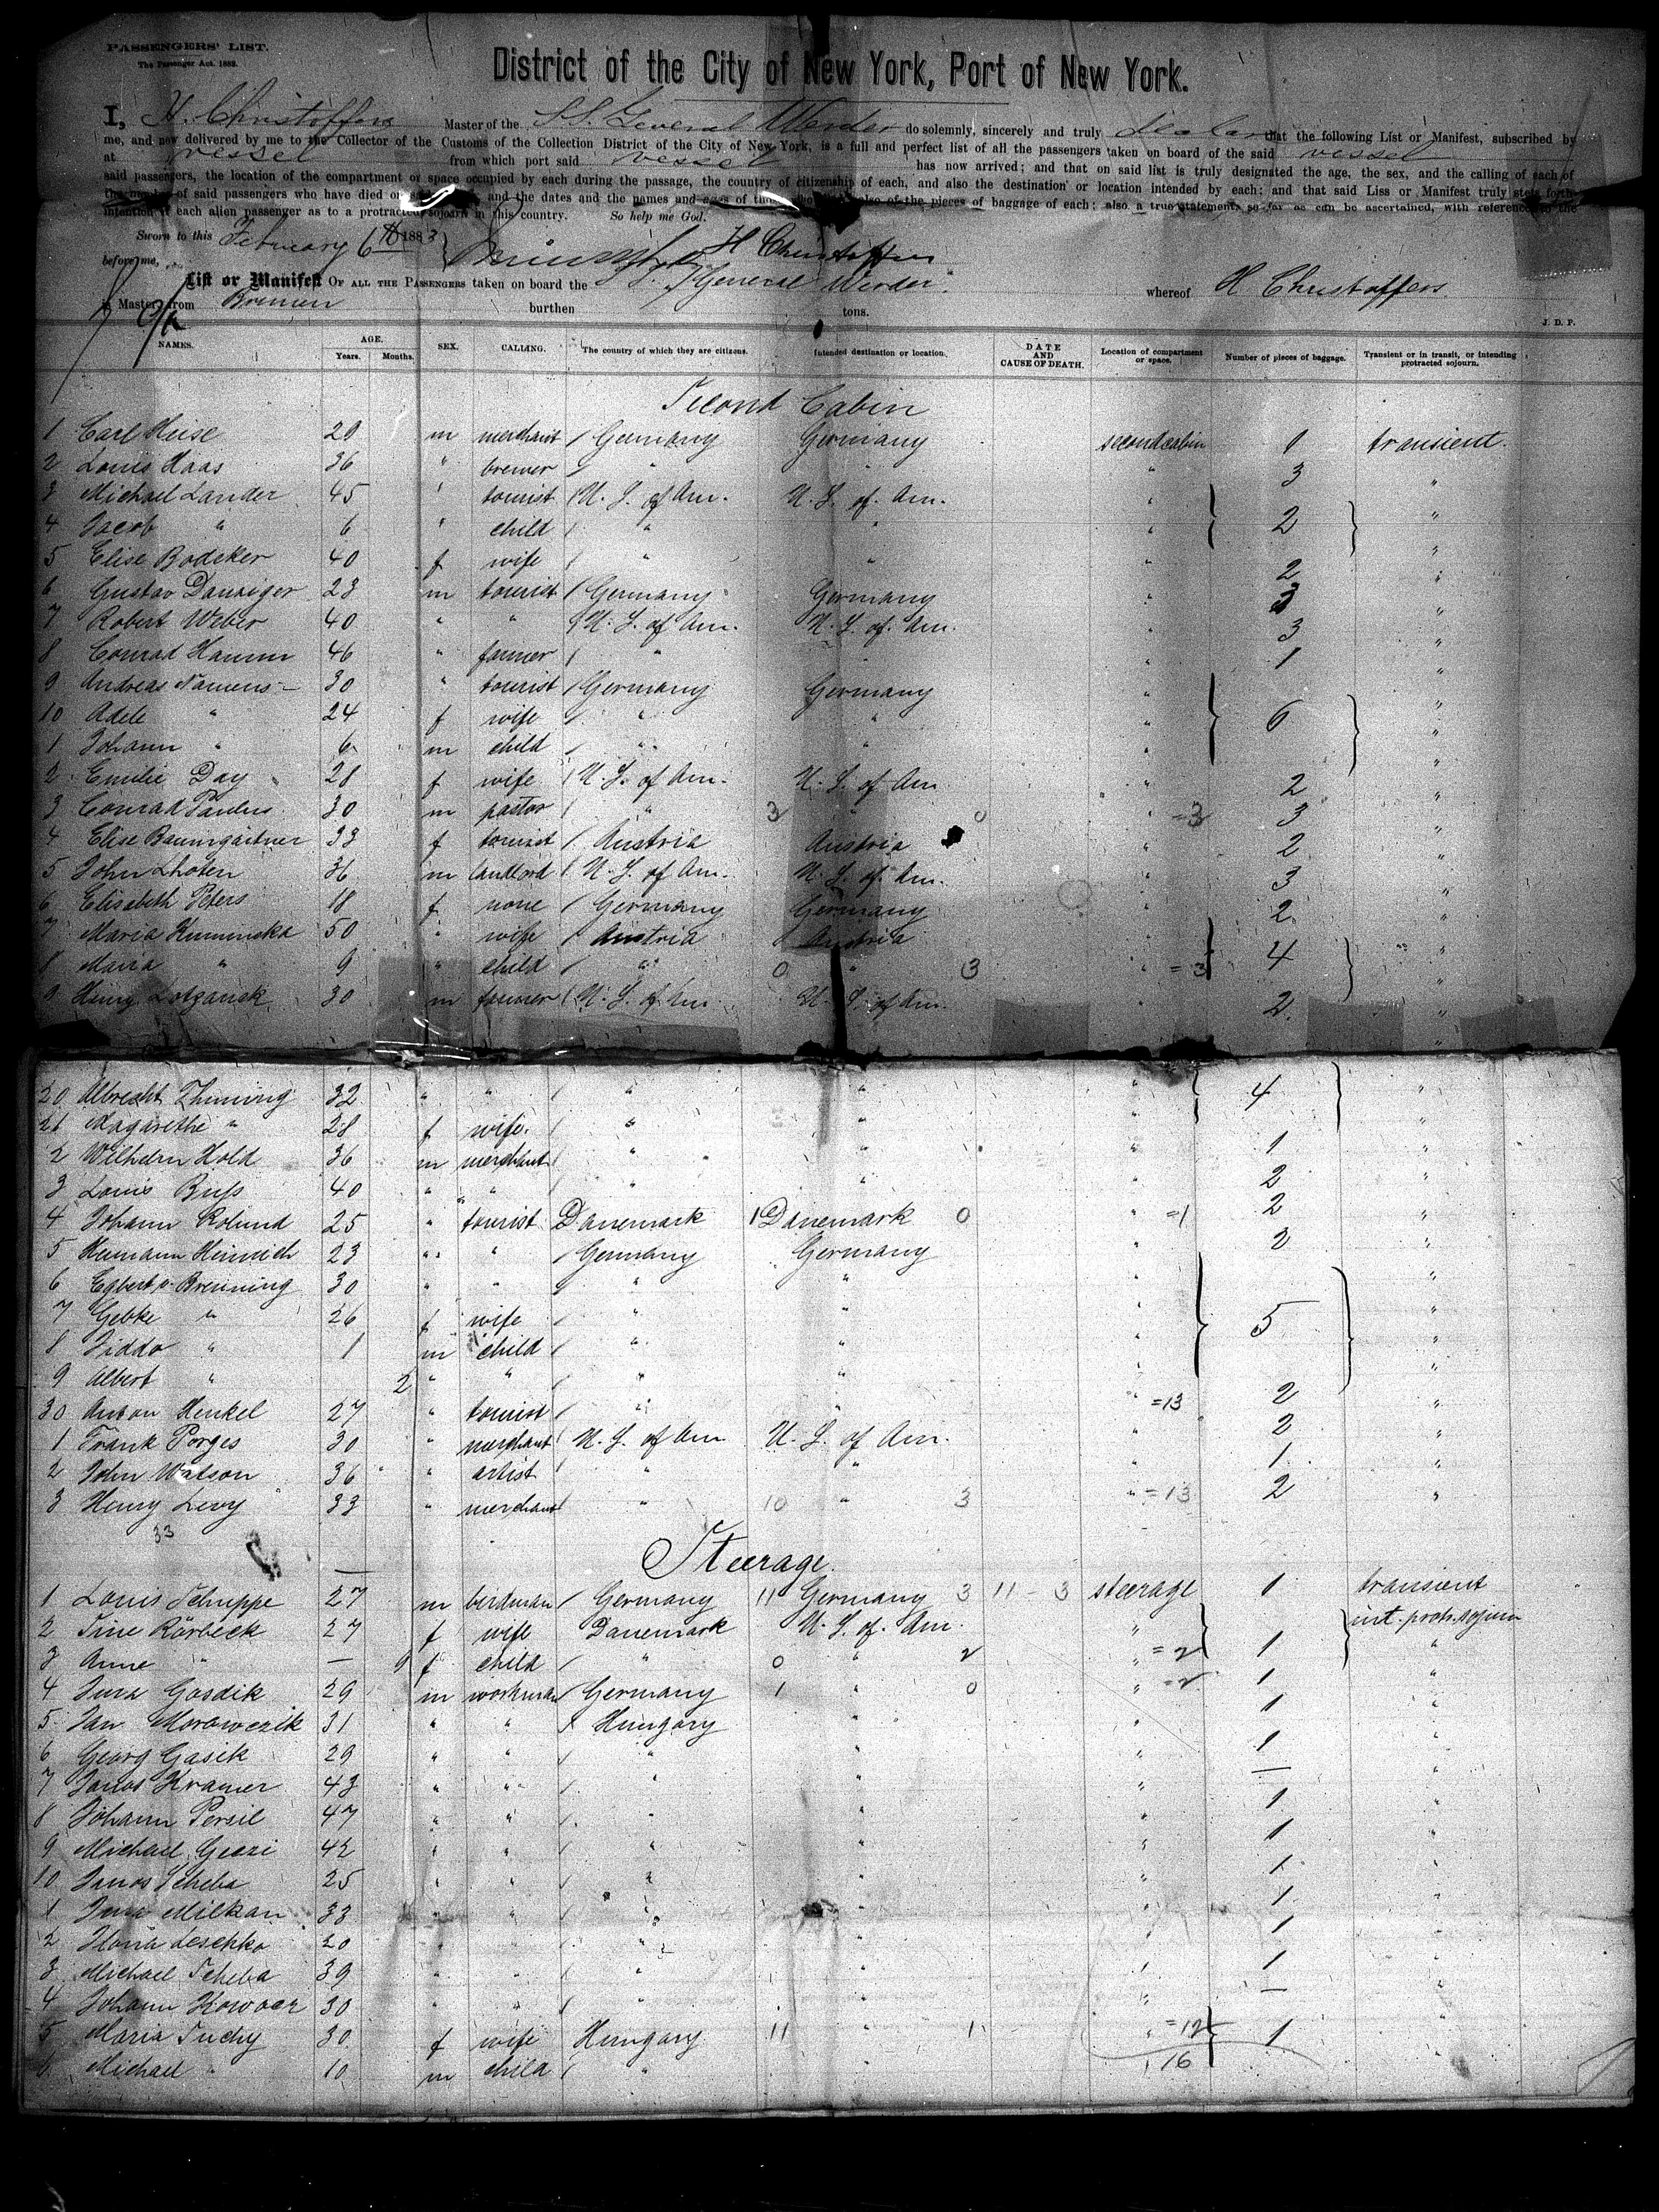 PASSENGERS' LIST.
The Passenger Act. 1882.
District of the City of New York, Port of New York.
I, H. Christoffers Master of the S.S. General Werder do solemnly, sincerely and truly declare that the following List or Manifest, subscribed by
me, and now delivered by me to the Collector of the Customs of the Collection District of the City of New York, is a full and perfect list of all the passengers taken on board of the said vessel
at vessel from which port said vessel has now arrived; and that on said list is truly designated the age, the sex, and the calling of each of
said passengers, the location of the compartment or space occupied by each during the passage, the country of citizenship of each, and also the destination or location intended by each; and that said Liss or Manifest truly sets forth
the number of said passengers who have died on and the dates and the names and ages of those also of the pieces of baggage of each; also a true statement, so far as can be ascertained, with reference to the
intention of each alien passenger as to a protracted sojourn in this country. So help me God.
Sworn to this February 6th 1883 H Christoffers
before me,
List or Manifest OF ALL THE PASSENGERS taken on board the S.S. General Werder whereof H Christoffers
is Master, from Bremen burthen tons.
J. D. P.
NAMES. AGE. Years. Months. SEX. CALLING. The country of which they are citizens. Intended destination or location. DATE AND CAUSE OF DEATH. Location of compartment or space. Number of pieces of baggage. Transient or in transit, or intending protracted sojourn.
Second Cabin
1 Carl Heise 29 m merchant Germany Germany second cabin 1 transient
2 Louis Haas 36 " brewer " " " 3 "
3 Michael Lander 45 " tourist U. S. of Am. U. S. of Am. " 2 "
4 Jacob " 6 " child " " " "
5 Elise Bödeker 40 f wife " " " 2 "
6 Gustav Danziger 23 m tourist Germany Germany " 3 "
7 Robert Weber 40 " " U. S. of Am. U. S. of Am. " 3 "
8 Conrad Hamm 46 " farmer " " " 1 "
9 Andreas Namens 30 " tourist Germany Germany " 6 "
10 Adele " 24 f wife " " " "
1 Johann " 6 m child " " " "
2 Emilie Day 28 f wife U. S. of Am. U. S. of Am " 2 "
3 Conrad Paulus 30 m pastor " 3 " 0 " =3 3 "
4 Elise Baumgärtner 33 f tourist Austria Austria " 2 "
5 John Lhoten 36 m landlord U. S. of Am. U. S. of Am. " 3 "
6 Elisabeth Peters 18 f none Germany Germany " 2 "
7 Maria Kuminska 50 " wife Austria Austria " 4 "
8 Maria " 9 " child " 0 " 3 " =3 "
9 Henry Lotganck 30 m farmer U. S. of Am. U. S. of Am. " 2 "
20 Albrecht Thuming 32 " " " " " 4 "
21 Magarethe " 28 f wife " " " "
2 Wilhelm Hold 36 m merchant " " " 1 "
3 Louis Buss 40 " " " " " 2 "
4 Johann Rolund 25 " tourist Danemark 1 Danemark 0 " =1 2 "
5 Hermann Heinrich 23 " " Germany Germany " 2 "
6 Egbert v. Brenning 30 " " " " " 5 "
7 Gebke " 26 f wife " " " "
8 Fiddo " 1 m child " " " "
9 Albert " 2 " " " " " "
30 Anton Henkel 27 " tourist " " " =13 2 "
1 Frank Porges 30 " merchant U. S. of Am. U. S. of Am. " 2 "
2 John Watson 36 " artist " " " 1 "
3 Henry Levy 33 " merchant " 10 " 3 " =13 2 "
33
Steerage.
1 Louis Schuppe 27 m birdman Germany 11 Germany 3 11 - 3 steerage 1 transient
2 Tine Rörbeck 27 f wife Danemark U. S. of. Am. " 1 int. protr. sojourn
3 Anne " — 9 f child " 0 " 2 " =2 "
4 Jura Gosdik 29 m workman Germany 1 " 0 " =2 1 "
5 Jan Morawczik 31 " " Hungary " " 1 "
6 Georg Gasik 29 " " " " " 1 "
7 Janos Kramer 43 " " " " " — "
8 Johann Persil 47 " " " " " 1 "
9 Michael Geczi 42 " " " " " 1 "
10 Janos Scheba 25 " " " " " 1 "
1 Jura Milkan 33 " " " " " 1 "
2 Leschko 20 " " " " " 1 "
3 Michael Scheba 39 " " " " " 1 "
4 Johann Kowacz 30 " " " " " — "
5 Maria Tuchy 30 f wife Hungary 11 " 1 " =12 1 "
6 Michael " 10 m child " " 16 "